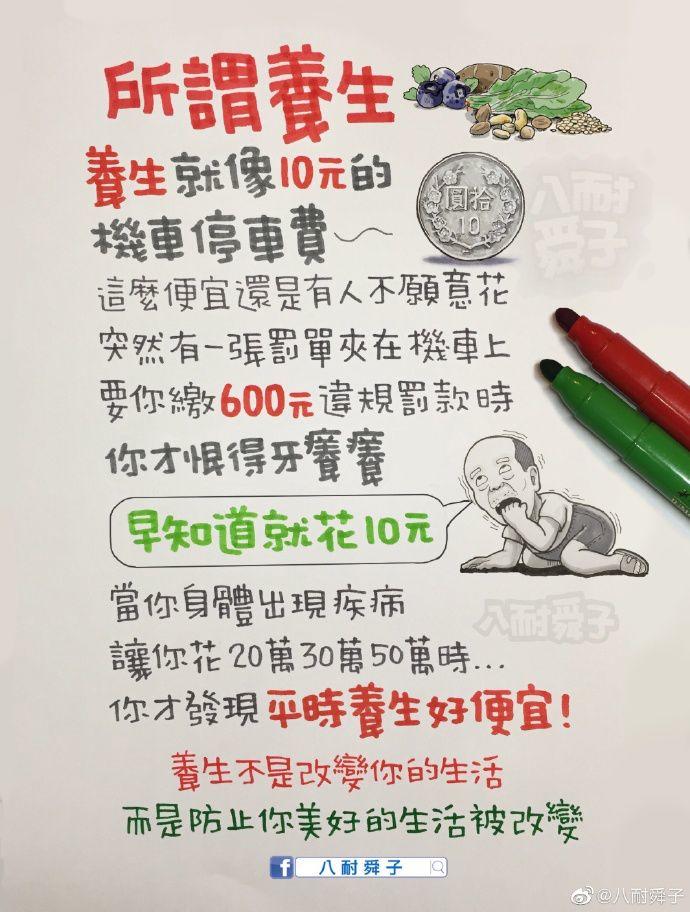 所謂養生
養生就像10元的
拾圓
10
機車停車費～
八耐
舜子
這麼便宜還是有人不願意花
突然有一張罰單夾在機車上
要你繳600元違規罰款時
你才恨得牙癢癢
早知道就花10元
當你身體出現疾病
八耐舜子
讓你花20萬30萬50萬時...
你才發現平時養生好便宜!
養生不是改變你的生活
而是防止你美好的生活被改變
f 八耐舜子
@八耐舜子